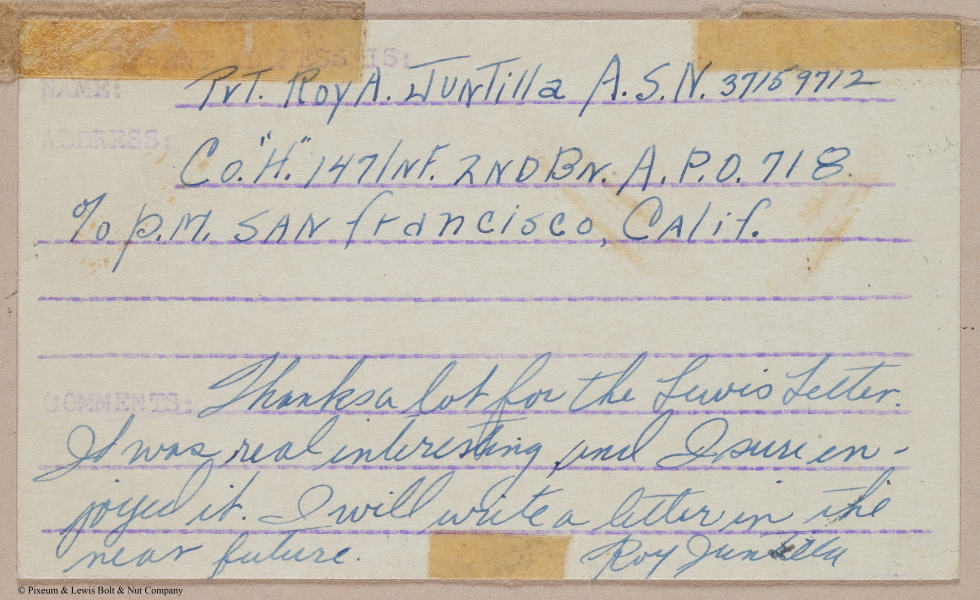 PRESENT ADDRESS IS:
NAME: Pvt. Roy A. Juntilla A.S.N. 37159712
ADDRESS:
Co. "H." 147 Inf. 2nd Bn. A.P.O. 718
% P.M. San francisco, Calif.
COMMENTS: Thanks a lot for the Lewis Letter.
It was real interesting and I sure en-
joyed it. I will write a letter in the
near future. Roy Juntilla
© Pixeum & Lewis Bolt & Nut Company